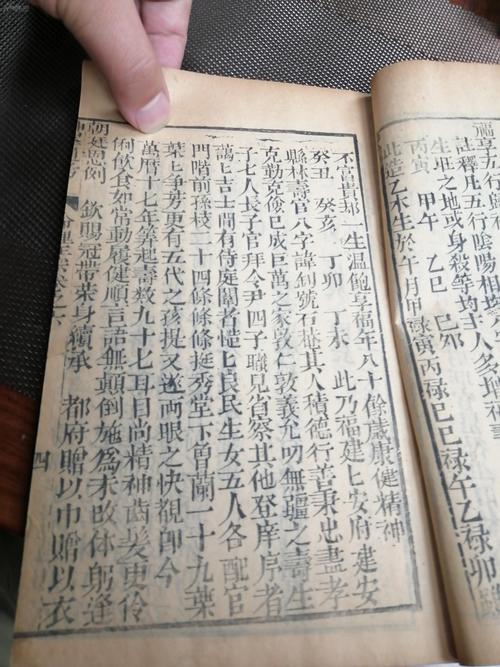 福享五行歸
註釋凡五行陰陽相
生旺之地或身殺等均主人多
丙寅 甲午 乙巳 己卯
此造乙木生於午月甲祿寅丙祿巳巳祿午乙祿卯
不富貴却一生溫飽享福年八十餘歲康健精神
癸丑 癸亥 丁卯 丁未 此乃福建上安府建安
縣林壽官八字諱釗號石菴其人積德行善秉忠盡孝
克勤克儉已成巨萬之家敦仁敦義允叨無疆之壽生
子七人長子官拜令尹四子職見省察其他登庠序者
藹上吉士間有侍庭闈者悒上良民生女五人各配官
門階前孫枝二十四條條條挺秀堂下曾蘭一十九葉
葉上爭芳更有五代之孩提又遂兩眼之快覩師今
萬曆十七年筭起壽數九十七耳目尚精神齒髮更伶
俐飲食如常動履健順言語無顛倒施為未改体躬逢
朝廷恩例 欽賜冠帶榮身續承 都府贈以巾贈以衣
四